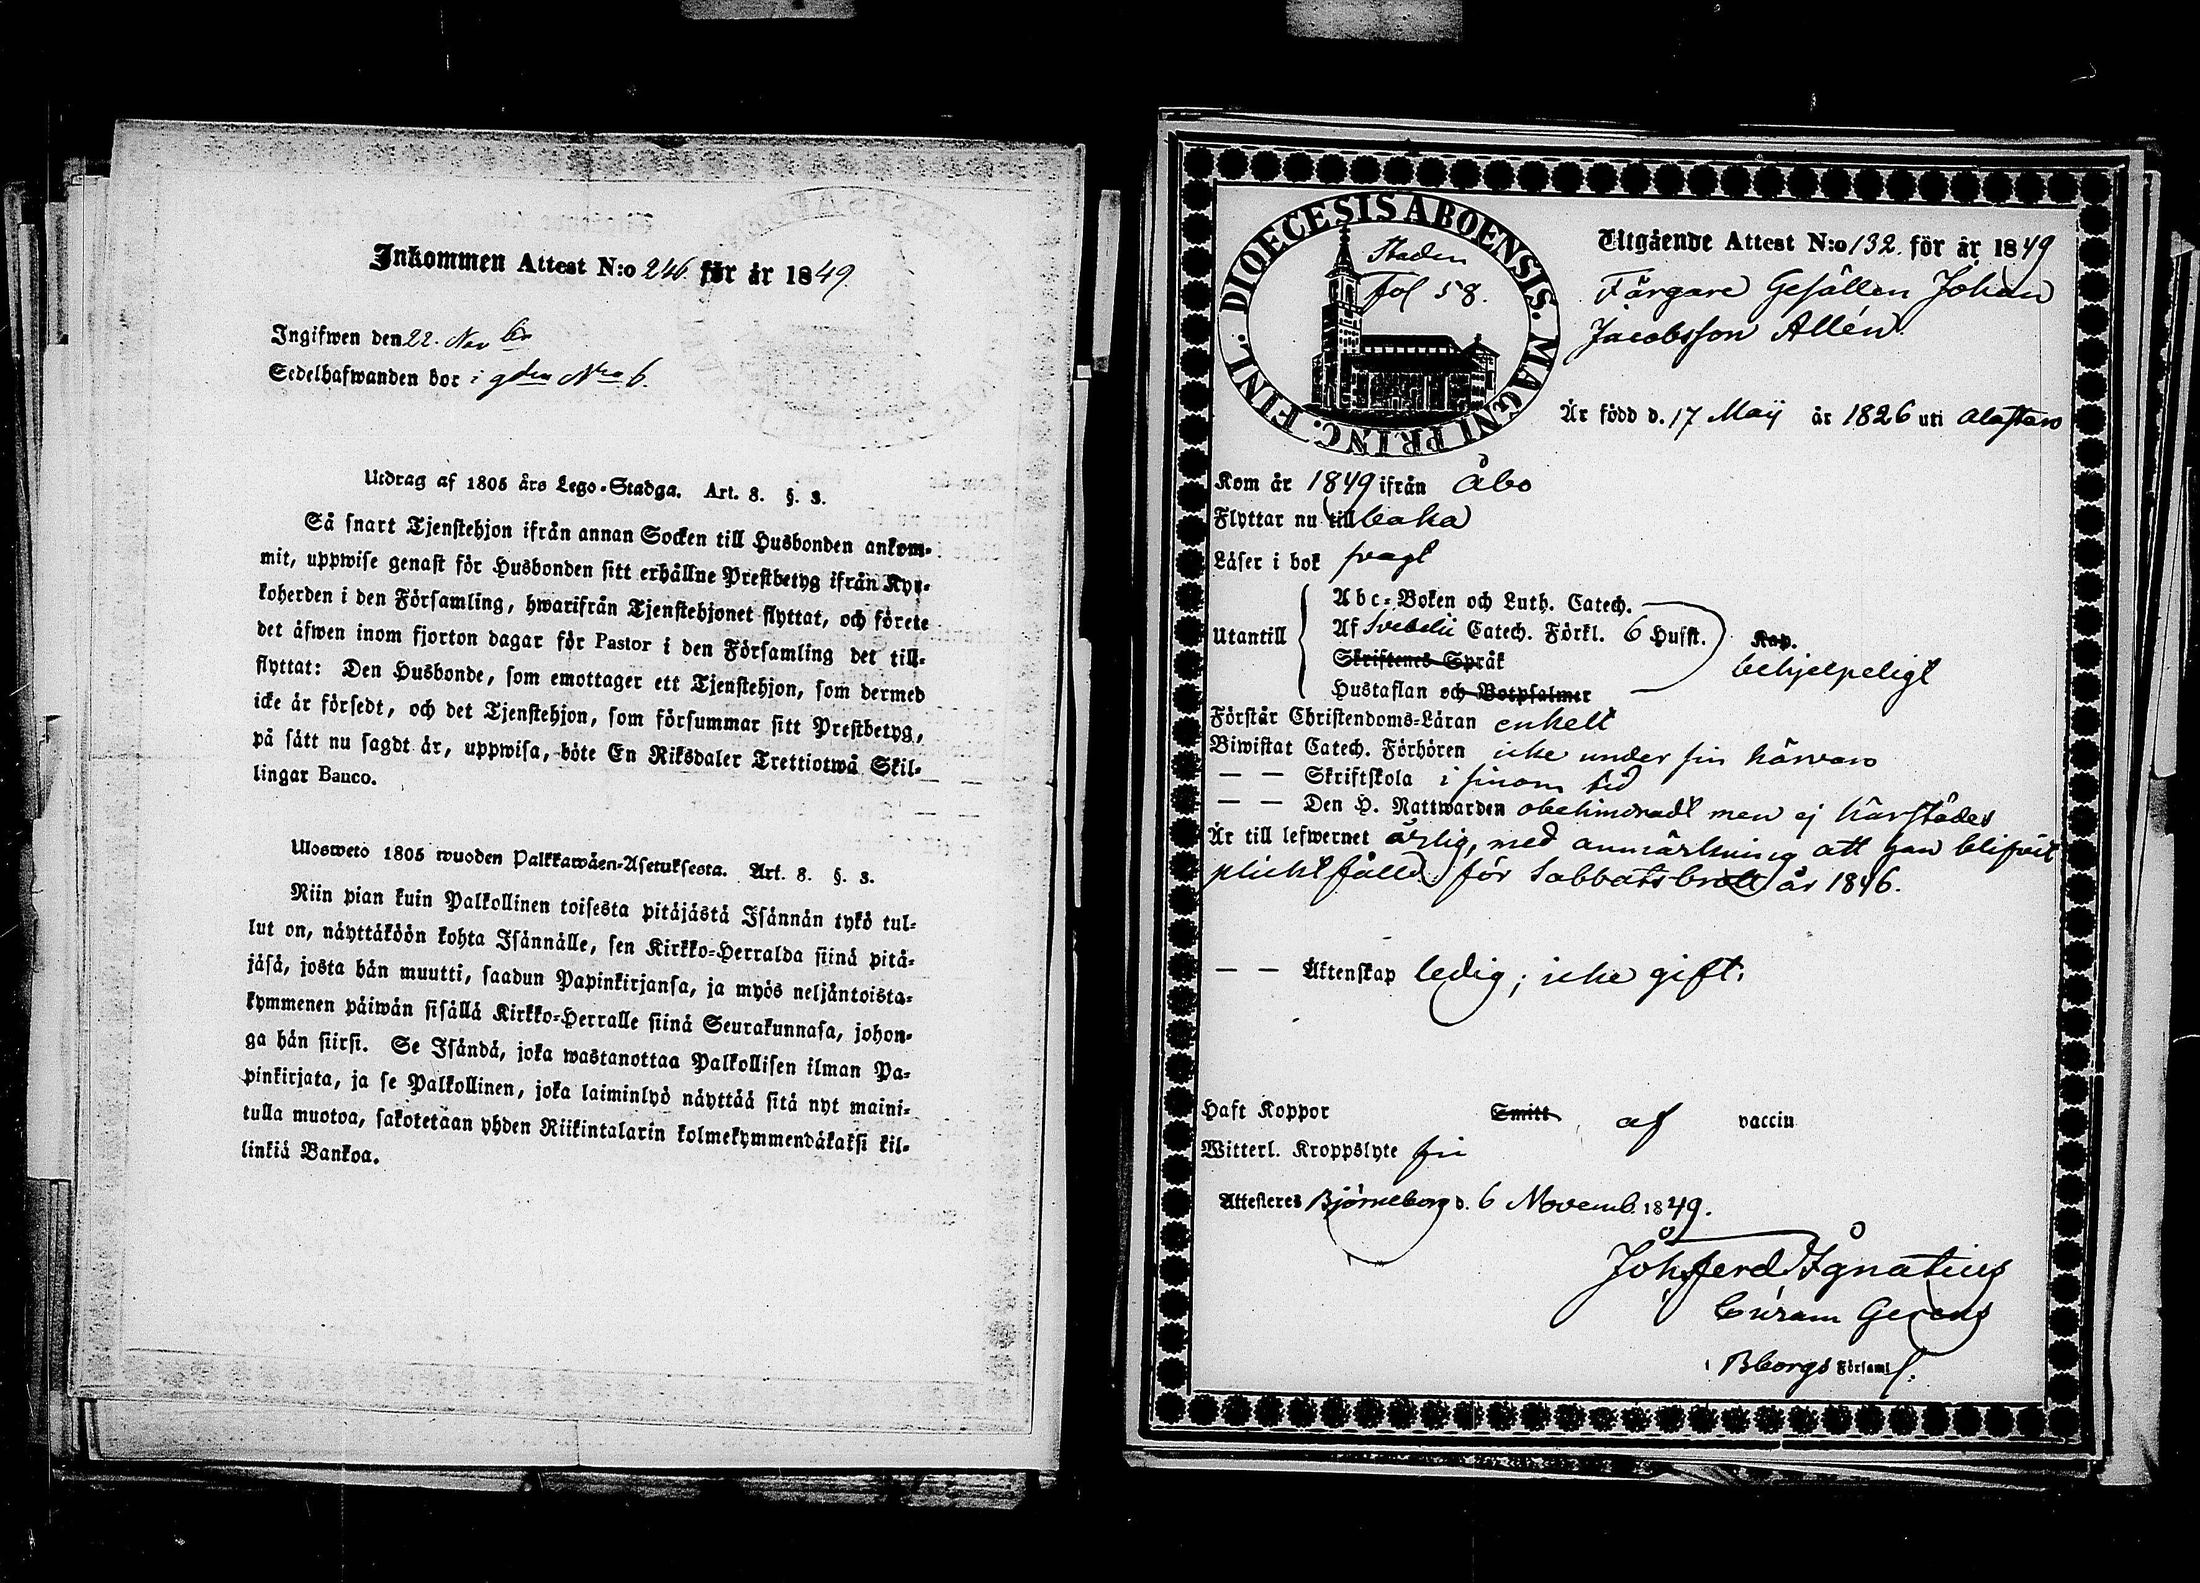 Inkommen Attest N:o 246 för år 1849.
Ingifwen den 22. Novbr
Sedelhafwanden bor i gden Nro 6.
Utdrag af 1805 års Lego-Stadga. Art. 8. §. 3.
Så snart Tjenstehjon ifrån annan Socken till Husbonden ankom-
mit, uppwise genast för Husbonden sitt erhållne Prestbetyg ifrån Kyr-
koherden i den Församling, hwarifrån Tjenstehjonet flyttat, och förete
det äfwen inom fjorton dagar för Pastor i den Församling det till-
flyttat: Den Husbonde, som emottager ett Tjenstehjon, som dermed
icke är försedt, och det Tjenstehjon, som försummar sitt Prestbetyg,
på sätt nu sagdt är, uppwisa, böte En Riksdaler Trettiotwå Skil-
lingar Banco.
Ulosweto 1805 wuoden Palkkawäen-Asetuksesta. Art. 8. §. 3.
Niin pian kuin Palkollinen toisesta pitäjästä Isännän tykö tul-
lut on, näyttäköön kohta Isännälle, sen Kirkko-Herralda siinä pitä-
jäsä, josta hän muutti, saadun Papinkirjansa, ja myös neljäntoista-
kymmenen päiwän sisällä Kirkko-Herralle siinä Seurakunnasa, johon-
ga hän siirsi. Se Isändä, joka wastanottaa Palkollisen ilman Pa-
pinkirjata, ja se Palkollinen, joka laiminlyö näyttää sitä nyt maini-
tulla muotoa, sakotetaan yhden Riikintalarin kolmekymmendäkaksi kil-
linkiä Bankoa.
DIOECESIS ABOENSIS. MAGNI PRINC. FINL.
Staden
Fol 58.
Utgående Attest N:o 132. för år 1849
Färgare Gesällen Johan
Jacobsson Allén.
Är född d. 17 Maij år 1826 uti Alastaro
Kom år 1849 ifrån Åbo
Flyttar nu tillbaka
Läser i bok svagt
Utantill
Abc-Boken och Luth. Catech.
Af Svebelii Catech. Förkl. 6 Hufst. Kap.
Skriftenes Språk
behjelpeligt
Hustaflan och Botpsalmer
Förstår Christendoms-Läran enkelt
Biwistat Catech. Förhören icke under sin härvaro
— — Skriftskola i sinom tid
— — Den H. Nattwarden obehindradt men ej härstädes
Är till lefwernet ärlig, med anmärkning att han blifvit
plichtfälld för Sabbatsbrott år 1846.
— — Äktenskap ledig; icke gift.
Haft Koppor Smitt af vaccin
Witterl. Kroppslyte fri
Attesteres Björneborg d. 6 Novemb. 1849.
Joh. Ferd. Ignatius
Curam Gerens
i Bborgs Församl.